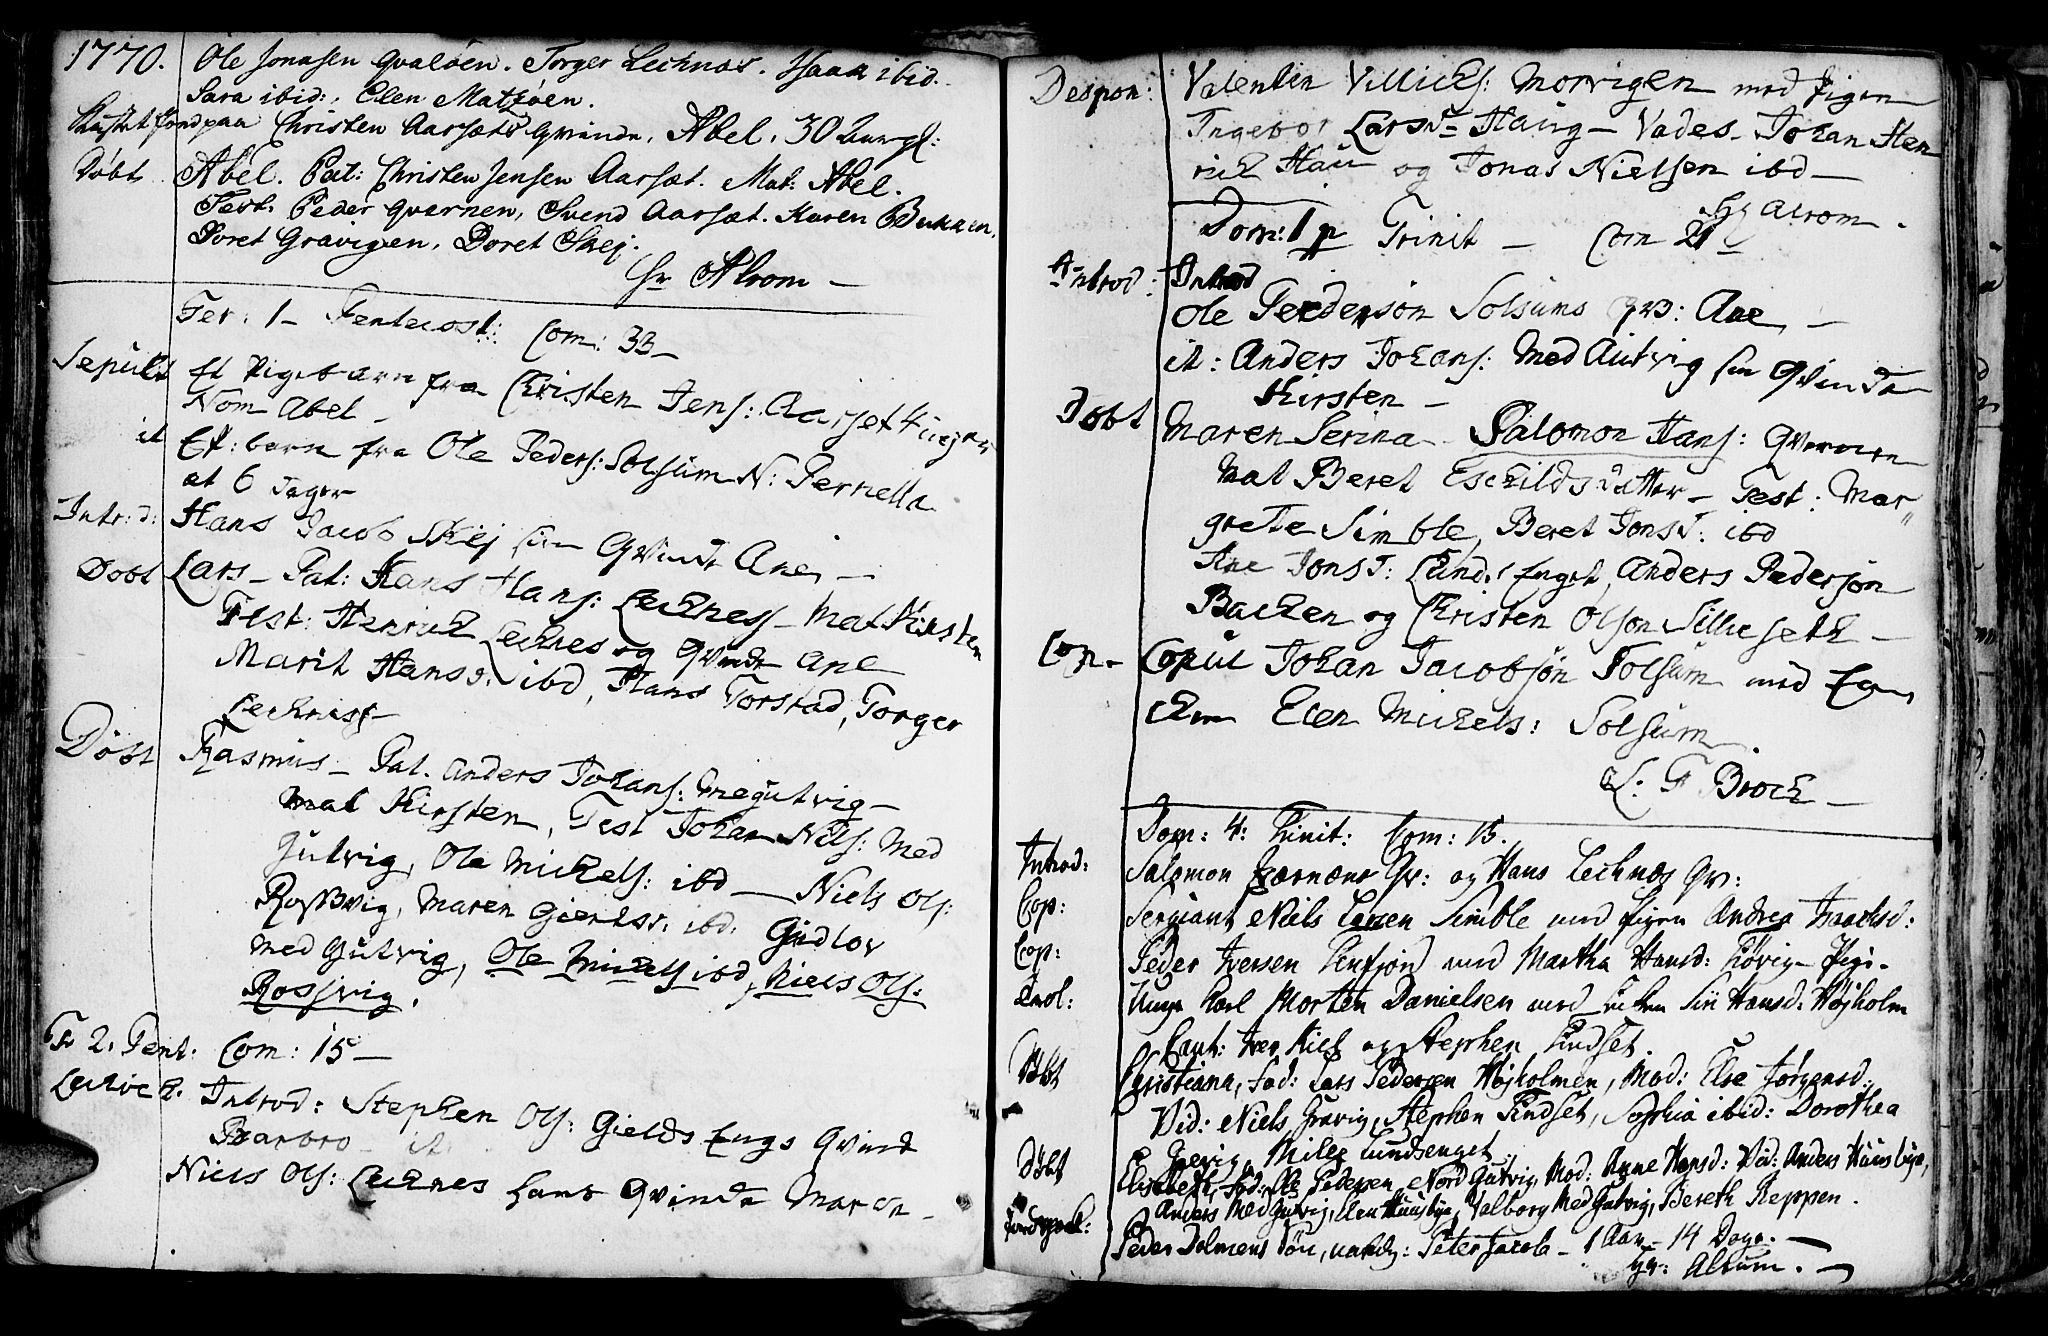 1770. Ole Jonasen Qvaløen. Torger Lechnas. Isaac ibid.
Sara ibid:, Elen Matzøen.
paa Christen Aarsæts Qvinde, Abel, 30
Døbt Abel. Pat: Christen Jensen Aarsæt. Mat: Abel.
Test: Peder Qvernen, Svend Aarsæt. Karen
Doret Gravigen, Doret Skej.
Hr Alrom —
Fer: 1 — Pentecost: Com: 33 —
Sepult Et Pigebarn fra Christen Jens: Aarset 4 uger
Nom Abel —
it Et: barn fra Ole Peders: Solsum N: Pernella
at 6 Dager
Introd: Hans Jacob Skej sin Qvinde Ane —
Døbt Lars — Pat: Hans Hans: Lechness — Mat Kirsten
Test: Henrich Lechnes og Qvinde Ane
Marit Hansd. ibd, Hans Torstad, Torger
Lechness —
Døbt Rasmus — Pat. Anders Johans: Megutvig —
Mat Kirsten, Test Johan Nils: Med
Gutvig, Ole Michels: ibd — Niels Ols:
Rossvig, Maren ibd: Gudlov
Med Gutvig, Ole Michels ibd, Niels Ols:
Rossvig.
Fr 2. Pent: Com: 15 —
Introd: Stephen Ols: Gields Engs Qvinde
Barbro — it
Niels Ols: Lechnes hans Qvinde Maren —
Despon: Valentin Villichs: Morvigen med Pigen
Ingebor Larsd= Haug — Vades — Johan Hen
rich Hau og Jonas Nielsen ibd —
Hr Alrom.
Dom: 1 p Trinit — Com 21
Introd: Introd
Ole Pederson Solsums qv: Ane —
it: Anders Johans: Med Gutvig sin Qvinde
Kirsten —
Døbt Maren Serina — Salomon Hans: Qvernen
Mat Beret Eschilds datter — Test: Mar
grete Simble, Beret Jonsd: ibd
Ane Jonsd: Lunds Enget, Anders Pedersøn
Backen og Christen Olson Sillieseth —
Cop — Copul Johan Jacobsøn Solsum med
Elen Michels: Solsum.
L: F Broch —
Dom: 4: Trinit: Com: 15.
Introd: Salomon Qvernens Qv: og Hans Lechnes Qv:
Cop: Sergiant Niels Larsen Simble med Pigen Andrea Isachsd:
Cop: Peder Iversen med Martha Hansd: — Pige.
Trol: Unge Karl Morten Danielsen med Hansd: Højholm
Caut: Iver Kiel og Stephen Findset
Døbt Christiana, Fad: Lars Pedersen Højholmen, Mod: Else Jørgensd:
Vid: Niels Gravig, Stephen Findset, Sophia ibid: Dorothea
Grevig, Milez Lundsenget.
Døbt Elisabeth, Fad: Ole Pedersen Nord Gutvig, Mod: Anne Hansd: Vid: Anders Huusbye,
Anders Med Gutvig, Elen Huusbye, Valborg Med Gutvig, Bereth Reppen.
Peder Dolmens Søn, navnlig: Peter Jacob — 1 Aar — 14 Dage. —
Hr: Alrum. —